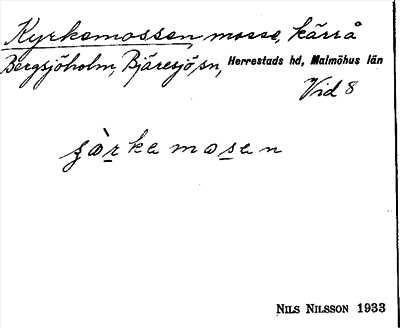 Kyrkemossen, mosse, kärr å
Bergsjöholm, Bjäresjö sn, Herrestads hd, Malmöhus län
Vid 8
NILS NILSSON 1933